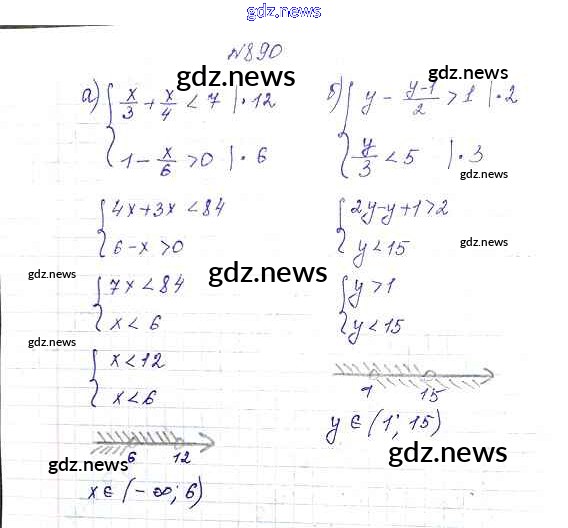 gdz.news
№890
gdz.news
а) { x/3 + x/4 < 7 | · 12
1 - x/6 > 0 | · 6
gdz.news
б) { y - (y-1)/2 > 1 | · 2
y/3 < 5 | · 3
gdz.news
{ 4x + 3x < 84
6 - x > 0
{ 2y - y + 1 > 2
y < 15
gdz.news
gdz.news
gdz.news
{ 7x < 84
x < 6
{ y > 1
y < 15
gdz.news
{ x < 12
x < 6
1 15
y ∈ (1; 15)
6 12
gdz.news
gdz.news
x ∈ (-∞; 6)